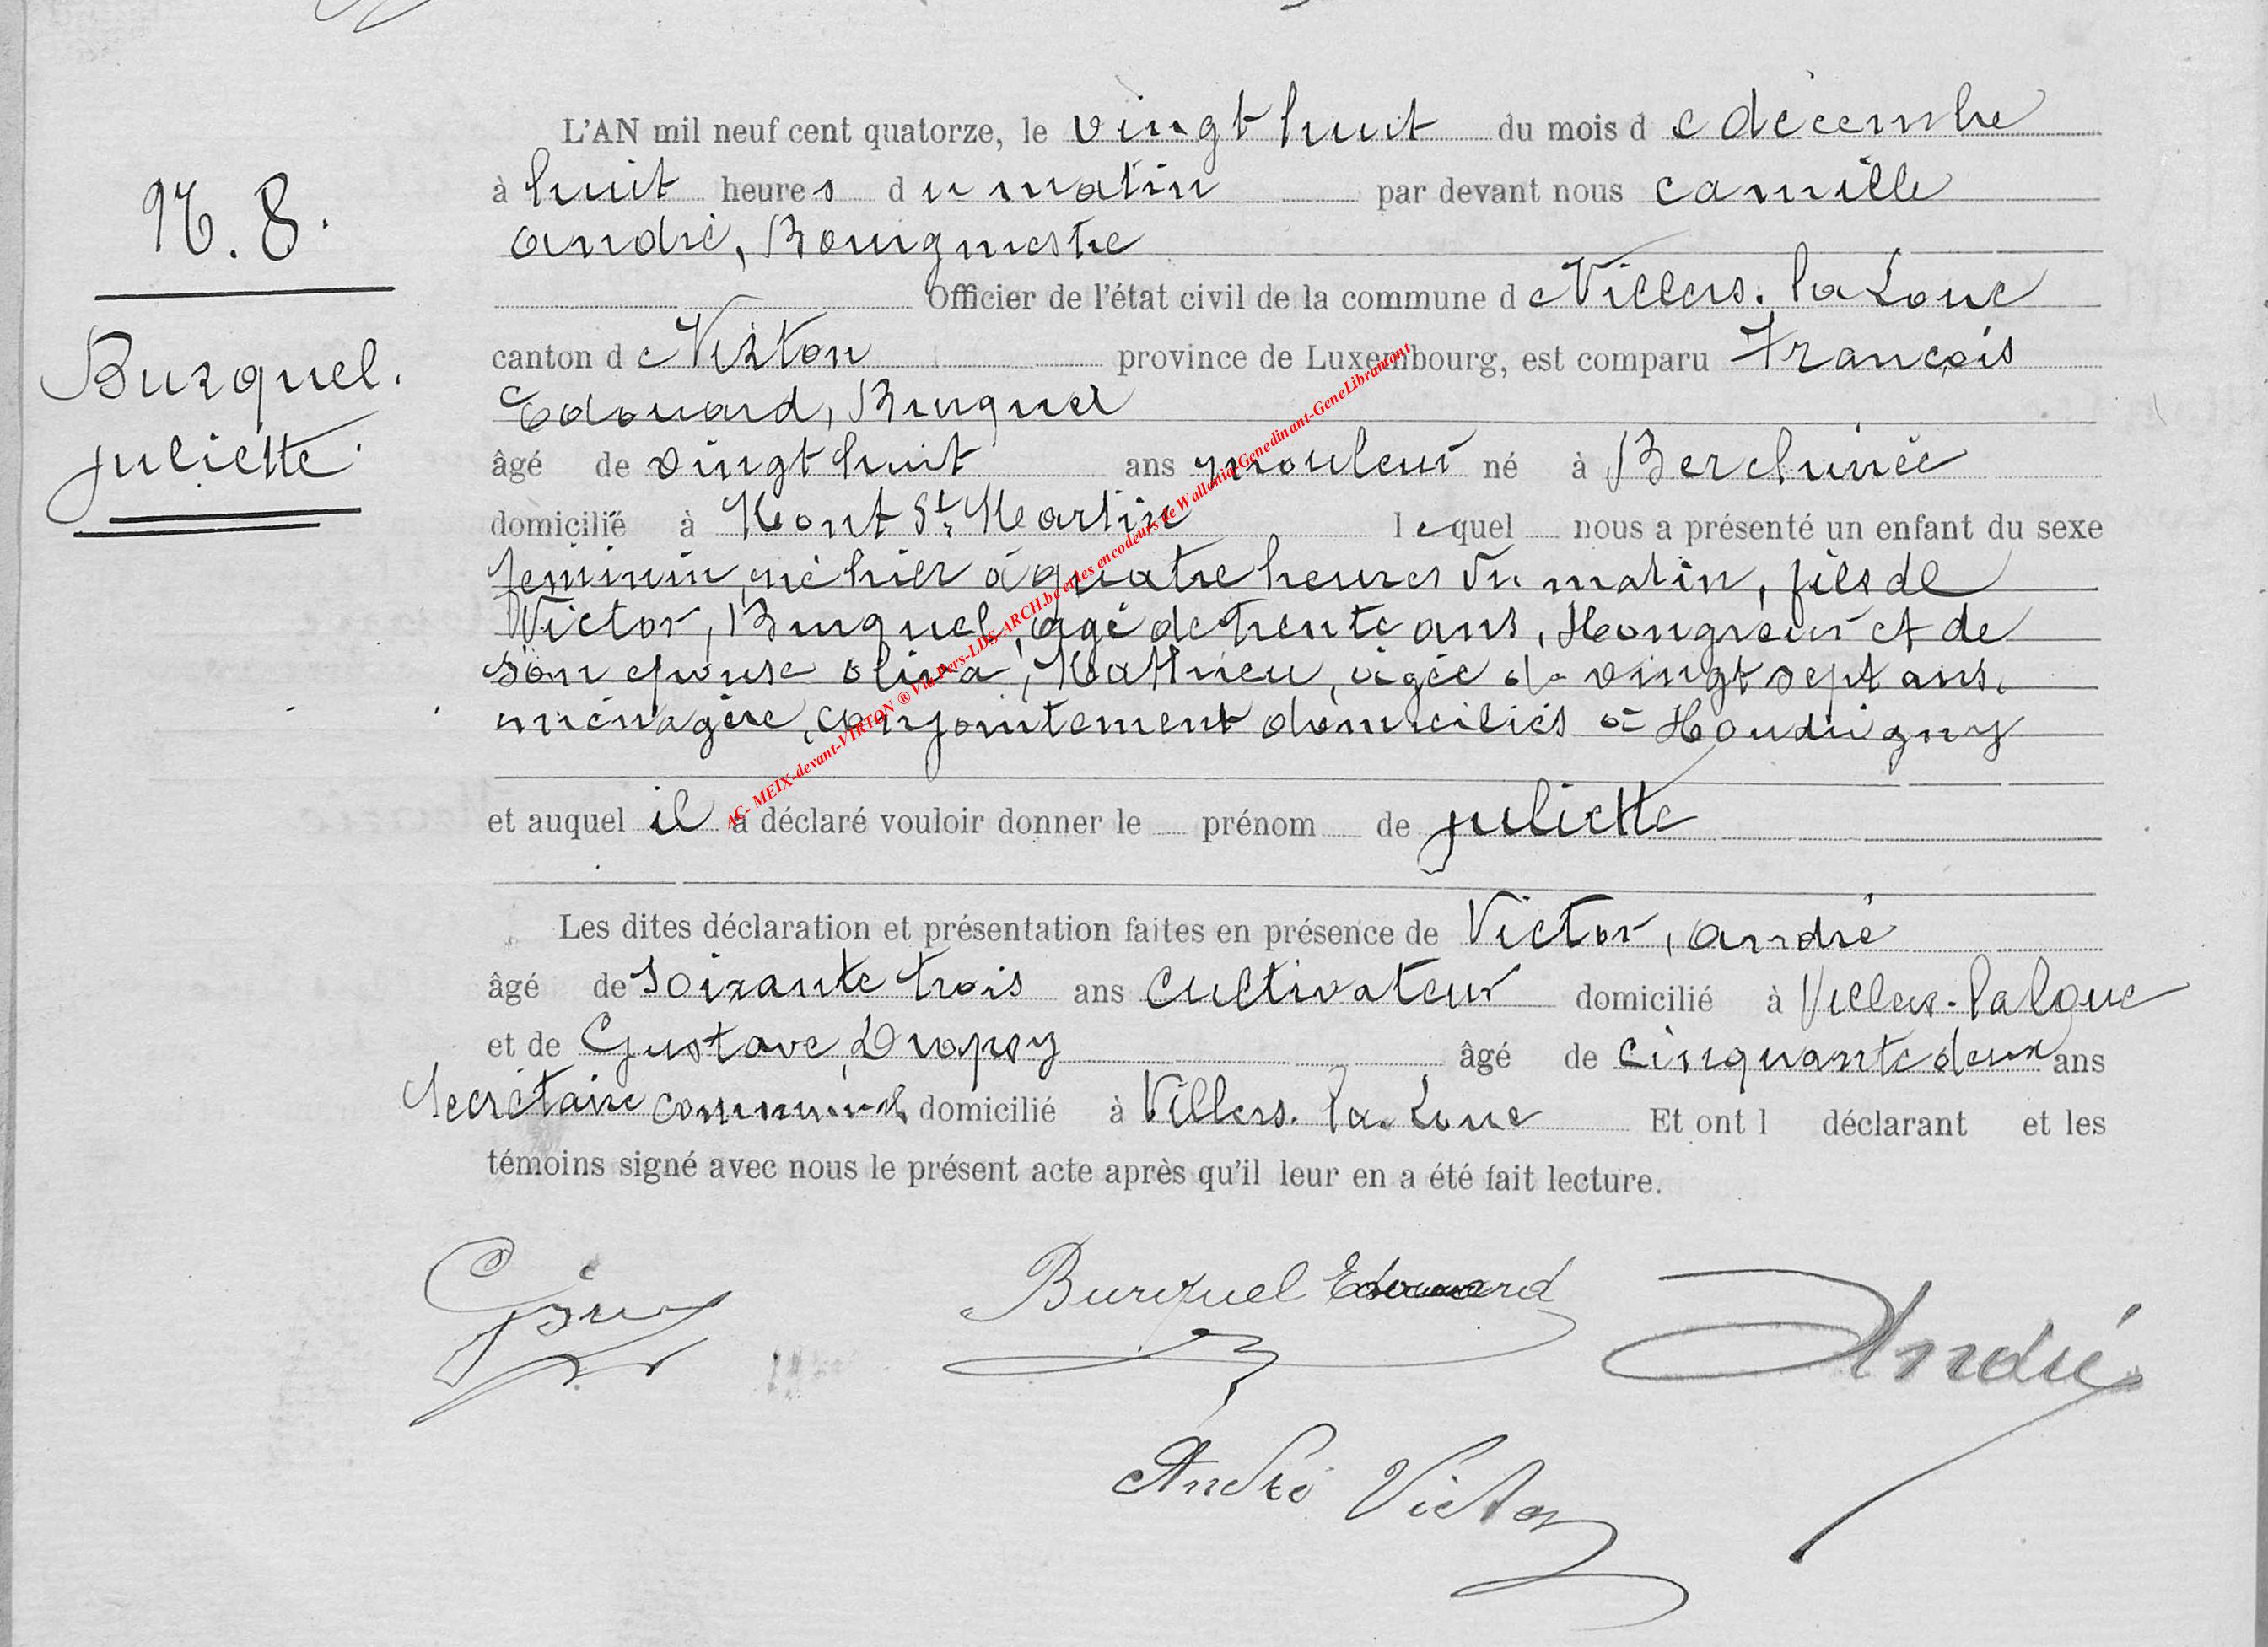 L'AN mil neuf cent quatorze, le vingt huit du mois d e décembre
à huit heures du matin par devant nous camille
andré, Bourgmestre
Officier de l'état civil de la commune de Villers-la Loue
canton de Virton province de Luxembourg, est comparu François
Edouard, Burquel
âgé de vingt huit ans mouleur né à Berchiwée
domicilié à Mont St Martin lequel nous a présenté un enfant du sexe
feminin, né hier à quatre heures du matin, fils de
Victor, Burquel, âgé de trente ans, Hongreur et de
son epouse oliva, Mathieu, âgée de vingt sept ans,
ménagère, conjointement domiciliés à Houdrigny
et auquel il a déclaré vouloir donner le prénom de juliette
Les dites déclaration et présentation faites en présence de Victor, andré
âgé de soixante trois ans cultivateur domicilié à Villers-la loue
et de Gustave, Dropsy âgé de cinquante deux ans
Secrétaire communal domicilié à Villers-la-Loue Et ont l déclarant et les
témoins signé avec nous le présent acte après qu'il leur en a été fait lecture.
N. 8.
Burquel.
juliette
Burquel Edouard
André
André Victor
AC- MEIX-devant-VIRTON ® Via Pers-LDS-ARCH.be et les encodeurs de Wallonia-Genedinant-GeneLibramont